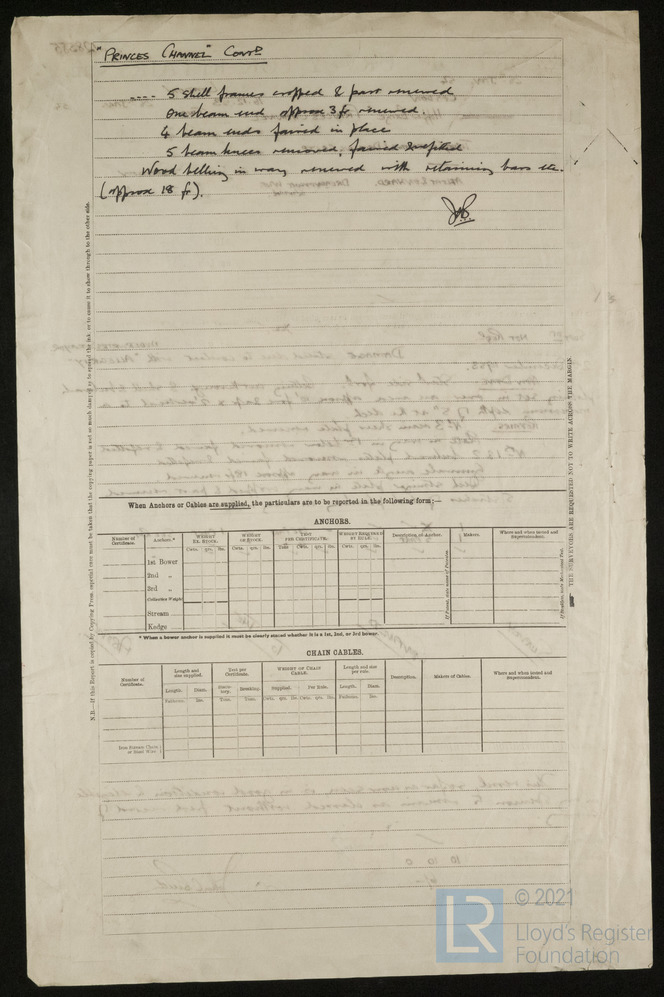 "PRINCES CHANNEL" CONTD
---- 5 shell frames cropped & part renewed
One beam end approx 3 fr renewed.
4 beam ends faired in place
5 beam knees removed, faired & refitted
Wood belting in way renewed with retaining bars etc.
(approx 18 fr).
When Anchors or Cables are supplied, the particulars are to be reported in the following form;—
ANCHORS.
Number of Certificate.
Anchors.*
WEIGHT EX. STOCK.
WEIGHT OF STOCK.
TEST PER CERTIFICATE.
WEIGHT REQUIRED BY RULE.
Description of Anchor.
Makers.
Where and when tested and Superintendent.
Cwts. qrs. lbs. Cwts. qrs. lbs. Tons Cwts. qrs. lbs. Cwts. qrs. lbs.
1st Bower
2nd „
3rd „
Collective Weight
Stream
Kedge
* When a bower anchor is supplied it must be clearly stated whether it is a 1st, 2nd, or 3rd bower.
CHAIN CABLES.
Number of Certificate.
Length and size supplied.
Test per Certificate.
WEIGHT OF CHAIN CABLE.
Length and size per rule.
Description.
Makers of Cables.
Where and when tested and Superintendent.
Length. Diam. Breaking. Supplied. Per Rule. Length. Diam.
Fathoms. Ins. Tons. Tons. Cwts. qrs. lbs. Cwts. qrs. lbs. Fathoms. Ins.
Iron Stream Chain or Steel Wire
N.B.—If this Report is copied by Copying Press especial care must be taken that the copying paper is not so much damped as to spread the ink or to cause it to show through to the other side.
THE SURVEYORS ARE REQUESTED NOT TO WRITE ACROSS THE MARGIN.
LR
© 2021
Lloyd's Register
Foundation